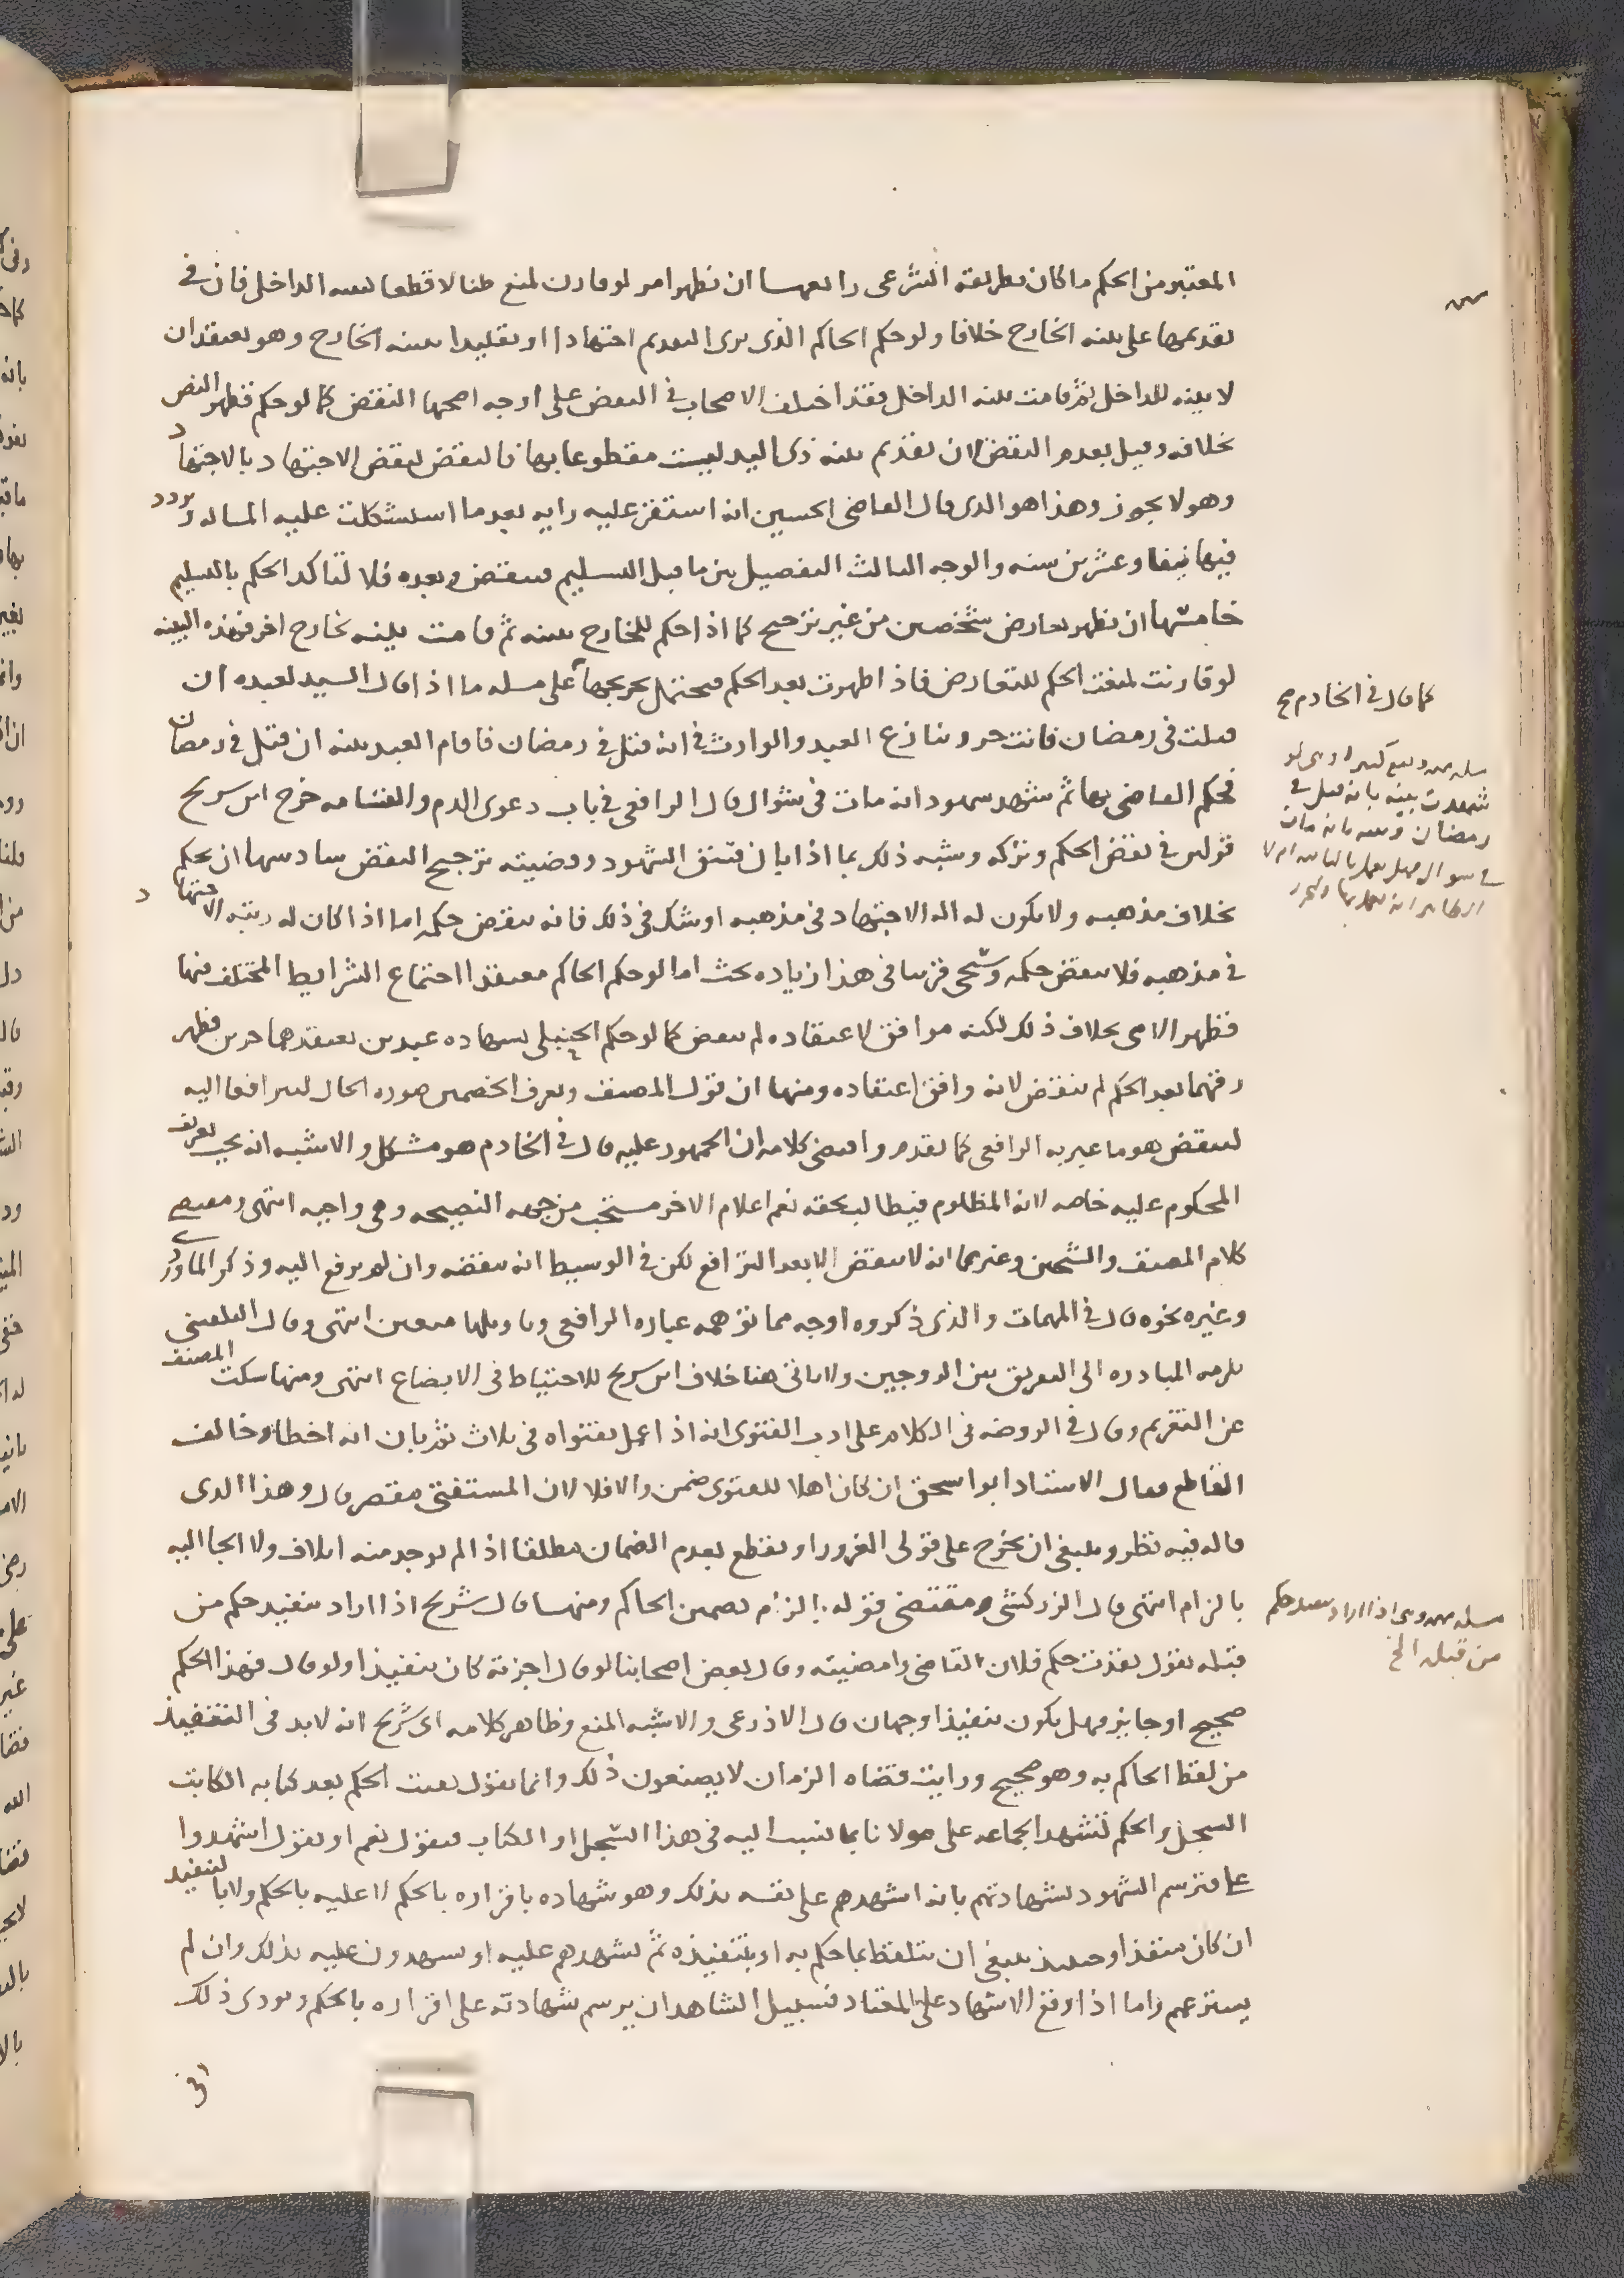 المعتبر من الحكم ما كان بطريقه الشرعى رابعها ان يظهر امر لو قارن لمنع ظنا لا قطعا كبينه الداخل فان في
تقديمها على بينه الخارج خلافا ولو حكم الحاكم الذى يرى التقديم اجتهادا او تقليدا ببينه الخارج وهو يعتقد ان
لا بينه للداخل ثم قامت بينه الداخل فقد اختلف الاصحاب في النقض على اوجه اصحها النقض كما لو حكم فظهر النص
بخلافه وقيل بعدم النقض لان تقديم بينه ذى اليد ليست مقطوعا بها فالنقض كنقض الاجتهاد بالاجتهاد
وهو لا يجوز وهذا هو الذى قال القاضى الحسين انه استقر عليه رايه بعد ما استشكلت عليه المساله وتردد
فيها نيفا وعشرين سنه والوجه الثالث التفصيل بين ما قبل التسليم فينقض وبعده فلا لتاكد الحكم بالتسليم
خامسها ان يظهر تعارض شخصين من غير ترجيح كما اذا حكم للخارج ببينه ثم قامت بينه لخارج اخر فهذه البينه
لو قارنت لمنعت الحكم للتعارض فاذا ظهرت بعد الحكم فيحتمل تخريجها على مسله ما اذا قال السيد لعبده ان
كما قال في الخادم صح
قتلت فى رمضان فانت حر وتنازع العبد والوارث في انه قتل في رمضان فاقام العبد بينه ان قتل في رمضان
فحكم القاضى بها ثم شهد شهود انه مات في شوال قال الرافعى في باب دعوى الدم والقسامه خرج ابن سريج
شهدت بينه بانه قتل في
رمضان وبينه بانه مات
في شوال فهل يعمل بالثانيه ام لا
قولين في نقض الحكم وتركه وشبه ذلك بما اذا بان فسق الشهود وقضيته ترجيح النقض سادسها ان يحكم
بخلاف مذهبه ولا يكون له اله الاجتهاد في مذهبه او شك في ذلك فانه ينقض حكمه اما اذا كان له رتبه الاجتهاد
في مذهبه فلا ينقض حكمه وسيجى قريبا في هذا زياده بحث اما لو حكم الحاكم معتقدا اجتماع الشرايط المختلف فيها
فظهر الامر بخلاف ذلك لكنه موافق لاعتقاده لم ينقض كما لو حكم الحنبلى بشهاده عبدين يعتقدهما حرين فظهر
رقهما بعد الحكم لم ينقض لانه وافق اعتقاده ومنها ان قول المصنف ويعرف الخصمين صوره الحال ليترافعا اليه
لينقض هو ما عبر به الرافعى كما تقدم واقتضى كلامه ان الجمهور عليه قال في الخادم هو مشكل والاشبه انه يجب تعريف
المحكوم عليه خاصه لانه المظلوم فيطالب بحقه نعم اعلام الاخر مستحب من جهه النصيحه وهى واجبه انتهى ومقتضى
كلام المصنف والشيخين وغيرهما انه لا ينقض الا بعد الترافع لكن في الوسيط انه ينقضه وان لم يرفع اليه وذكر الماوردى
وغيره نحوه قال في المهمات والذى ذكروه اوجه مما توهمه عباره الرافعى وتاويلها متعين انتهى وقال البلقينى
يلزمه المبادره الى التفريق بين الزوجين ولا ياتى هنا خلاف ابن سريج للاحتياط فى الابضاع انتهى ومنها سكت المصنف
عن التغريم وقال في الروضه في الكلام على ادب الفتوى انه اذا عمل بفتواه في ثلاث ثم بان انه اخطا وخالف
القاطع فقال الاستاد ابو اسحق ان كان اهلا للفتوى ضمن والا فلا لان المستفتى مقصر قال وهذا الذى
قاله فيه نظر وينبغى ان يخرج على قولى الغرور او يقطع بعدم الضمان مطلقا اذا لم يوجد منه اتلاف ولا الجا اليه
بالزام انتهى قال الزركشى ومقتضى قوله بالزام تضمين الحاكم ومنها قال شريح اذا اراد تنفيذ حكم من
اذا اراد تنفيذ حكم
من قبله الخ
قبله يقول نفذت حكم فلان القاضى وامضيته وقال بعض اصحابنا لو قال اجزته كان تنفيذا ولو قال هذا الحكم
صحيح او جايز فهل يكون تنفيذا وجهان قال الاذرعى والاشبه المنع وظاهر كلامه اى شريح انه لابد في التنفيذ
من لفظ الحاكم به وهو صحيح ورايت قضاه الزمان لا يصنعون ذلك وانما يقول بعد كتابه الكاتب
السجل والحكم تشهد الجماعه على مولانا بما نسب اليه في هذا السجل او الكتاب فيقول نعم او يقول اشهدوا
على فترسم الشهود شهادتهم بانه اشهدهم على نفسه بذلك وهو شهاده باقراره بالحكم لا عليه بالحكم ولا بالتنفيذ
ان كان منفذا وحينئذ ينبغى ان يتلفظ بما حكم به او بتنفيذه ثم يشهدهم عليه او يشهدون عليه بذلك وان لم
يسترعهم واما اذا وقع الاشهاد على المعتاد فسبيل الشاهد ان يرسم شهادته على اقراره بالحكم ويودى ذلك